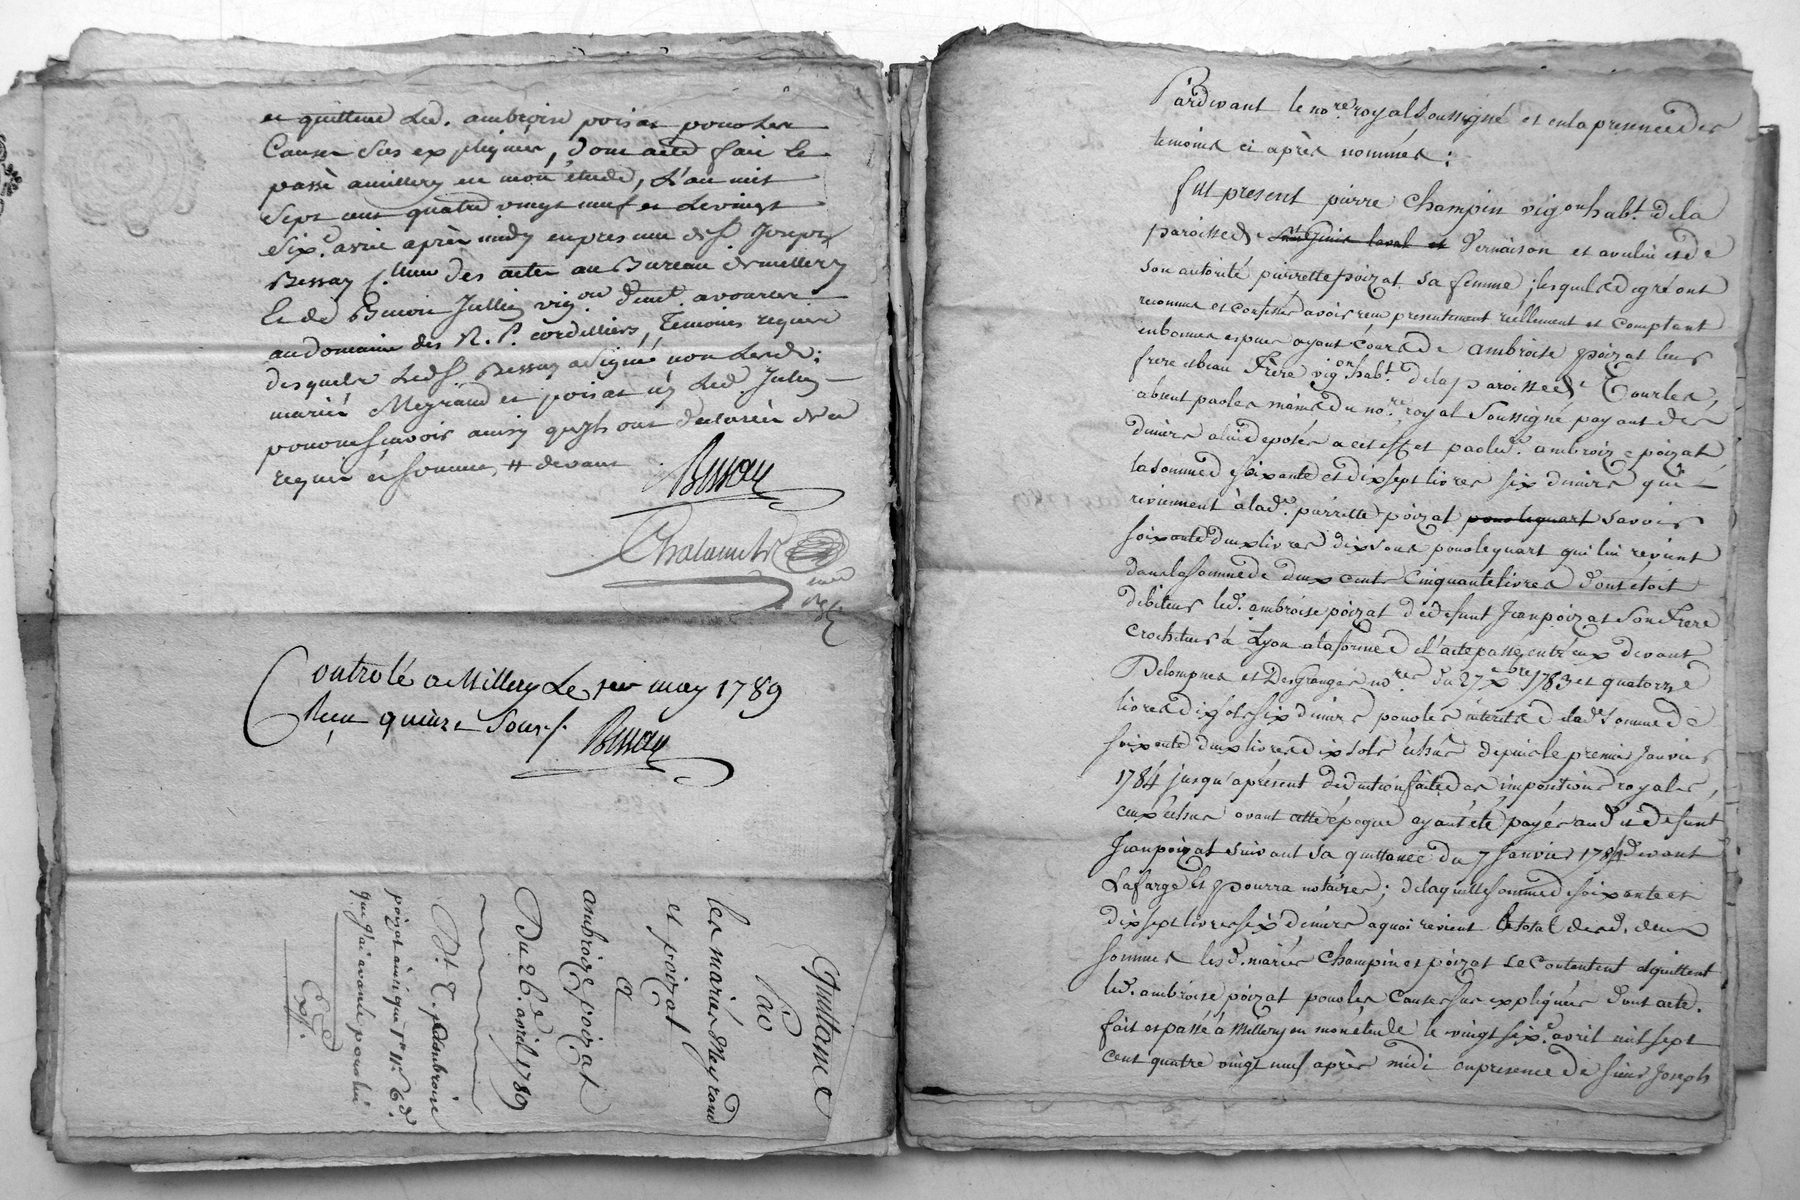 et quittent led. ambroise poizat pour les
causes sus expliquées, dont acte fait et
passé a millery en mon étude, L'an mil
Sept cent quatre vingt neuf et le vingt
six.e avril après midy en presence de s.r Joseph
Bessay des actes au Bureau de millery
et de Benoit Jullien vig.on
au domaine des R. P. cordelliers, Temoins requis
desquels led s.r Bessay a signé non lesd.
mariés Meyraud et poizat ny led Jullien
pour ne sçavoir ainsy qu'ils ont déclaré de ce
requis et sommés, # devant
Bessay
Controlé a Millery Le 1er may 1789
Reçu quinze Sous s.
Bessay
Quittance
Par
les mariés Meyraud
et poizat
a
ambroize poizat
Du 26.e avril 1789
D.t T. p.r ambroise
poizat ainsi que
que j'ai avancé pour lui
Exp.
Pardevant le no.re royal soussigné et en la presence des
temoins ci après nommés:
fut present pierre Champin vigon habt. de la
paroisse de St Genis laval et Vernaison et avec lui et de
son autorité pierrette poizat sa femme; lesquels de gré ont
reconnu et confessé avoir reçu presentement reellement et comptant
en bonnes especes ayant cours de ambroise poizat leur
frere et beau frère vigon habt. de la paroisse de Tourtes,
absent par les mains du no.re royal soussigné payant des
deniers a lui déposés a cet effet par led. ambroize poizat
la somme de soixante et dix sept livres six deniers qui
reviennent à lad. pierrette poizat pour le quart savoir
soixante deux livres dix sous pour le quart qui lui revient
dans la somme de deux cents cinquante livres dont etoit
debiteur led. ambroise poizat a defunt Jean poizat son frere
crocheteur à Lyon a la forme de l'acte passé entr'eux devant
Delompnes et Desgranges no.res du 27 Xbre 1783 et quatorze
livres dix sols six deniers pour les interets de lad. somme de
soixante deux livres dix sols échus depuis le premier Janvier
1784 jusqu'apresent deduction faite des impositions royales,
ceux échus avant cette époque ayant été payés aud. et defunt
Jean poizat suivant sa quittance du 7 Janvier 1784 devant
Lafarge et pourra notaires; de laquelle somme de soixante et
dix sept livres six deniers a quoi revient le total desd. deux
sommes lesd. mariés Champin et poizat se contentent et quittent
led. ambroise poizat pour les causes sus expliquées dont acte.
fait et passé à Millery en mon étude le vingt six.e avril mil sept
cent quatre vingt neuf après midi en presence de sieur Joseph